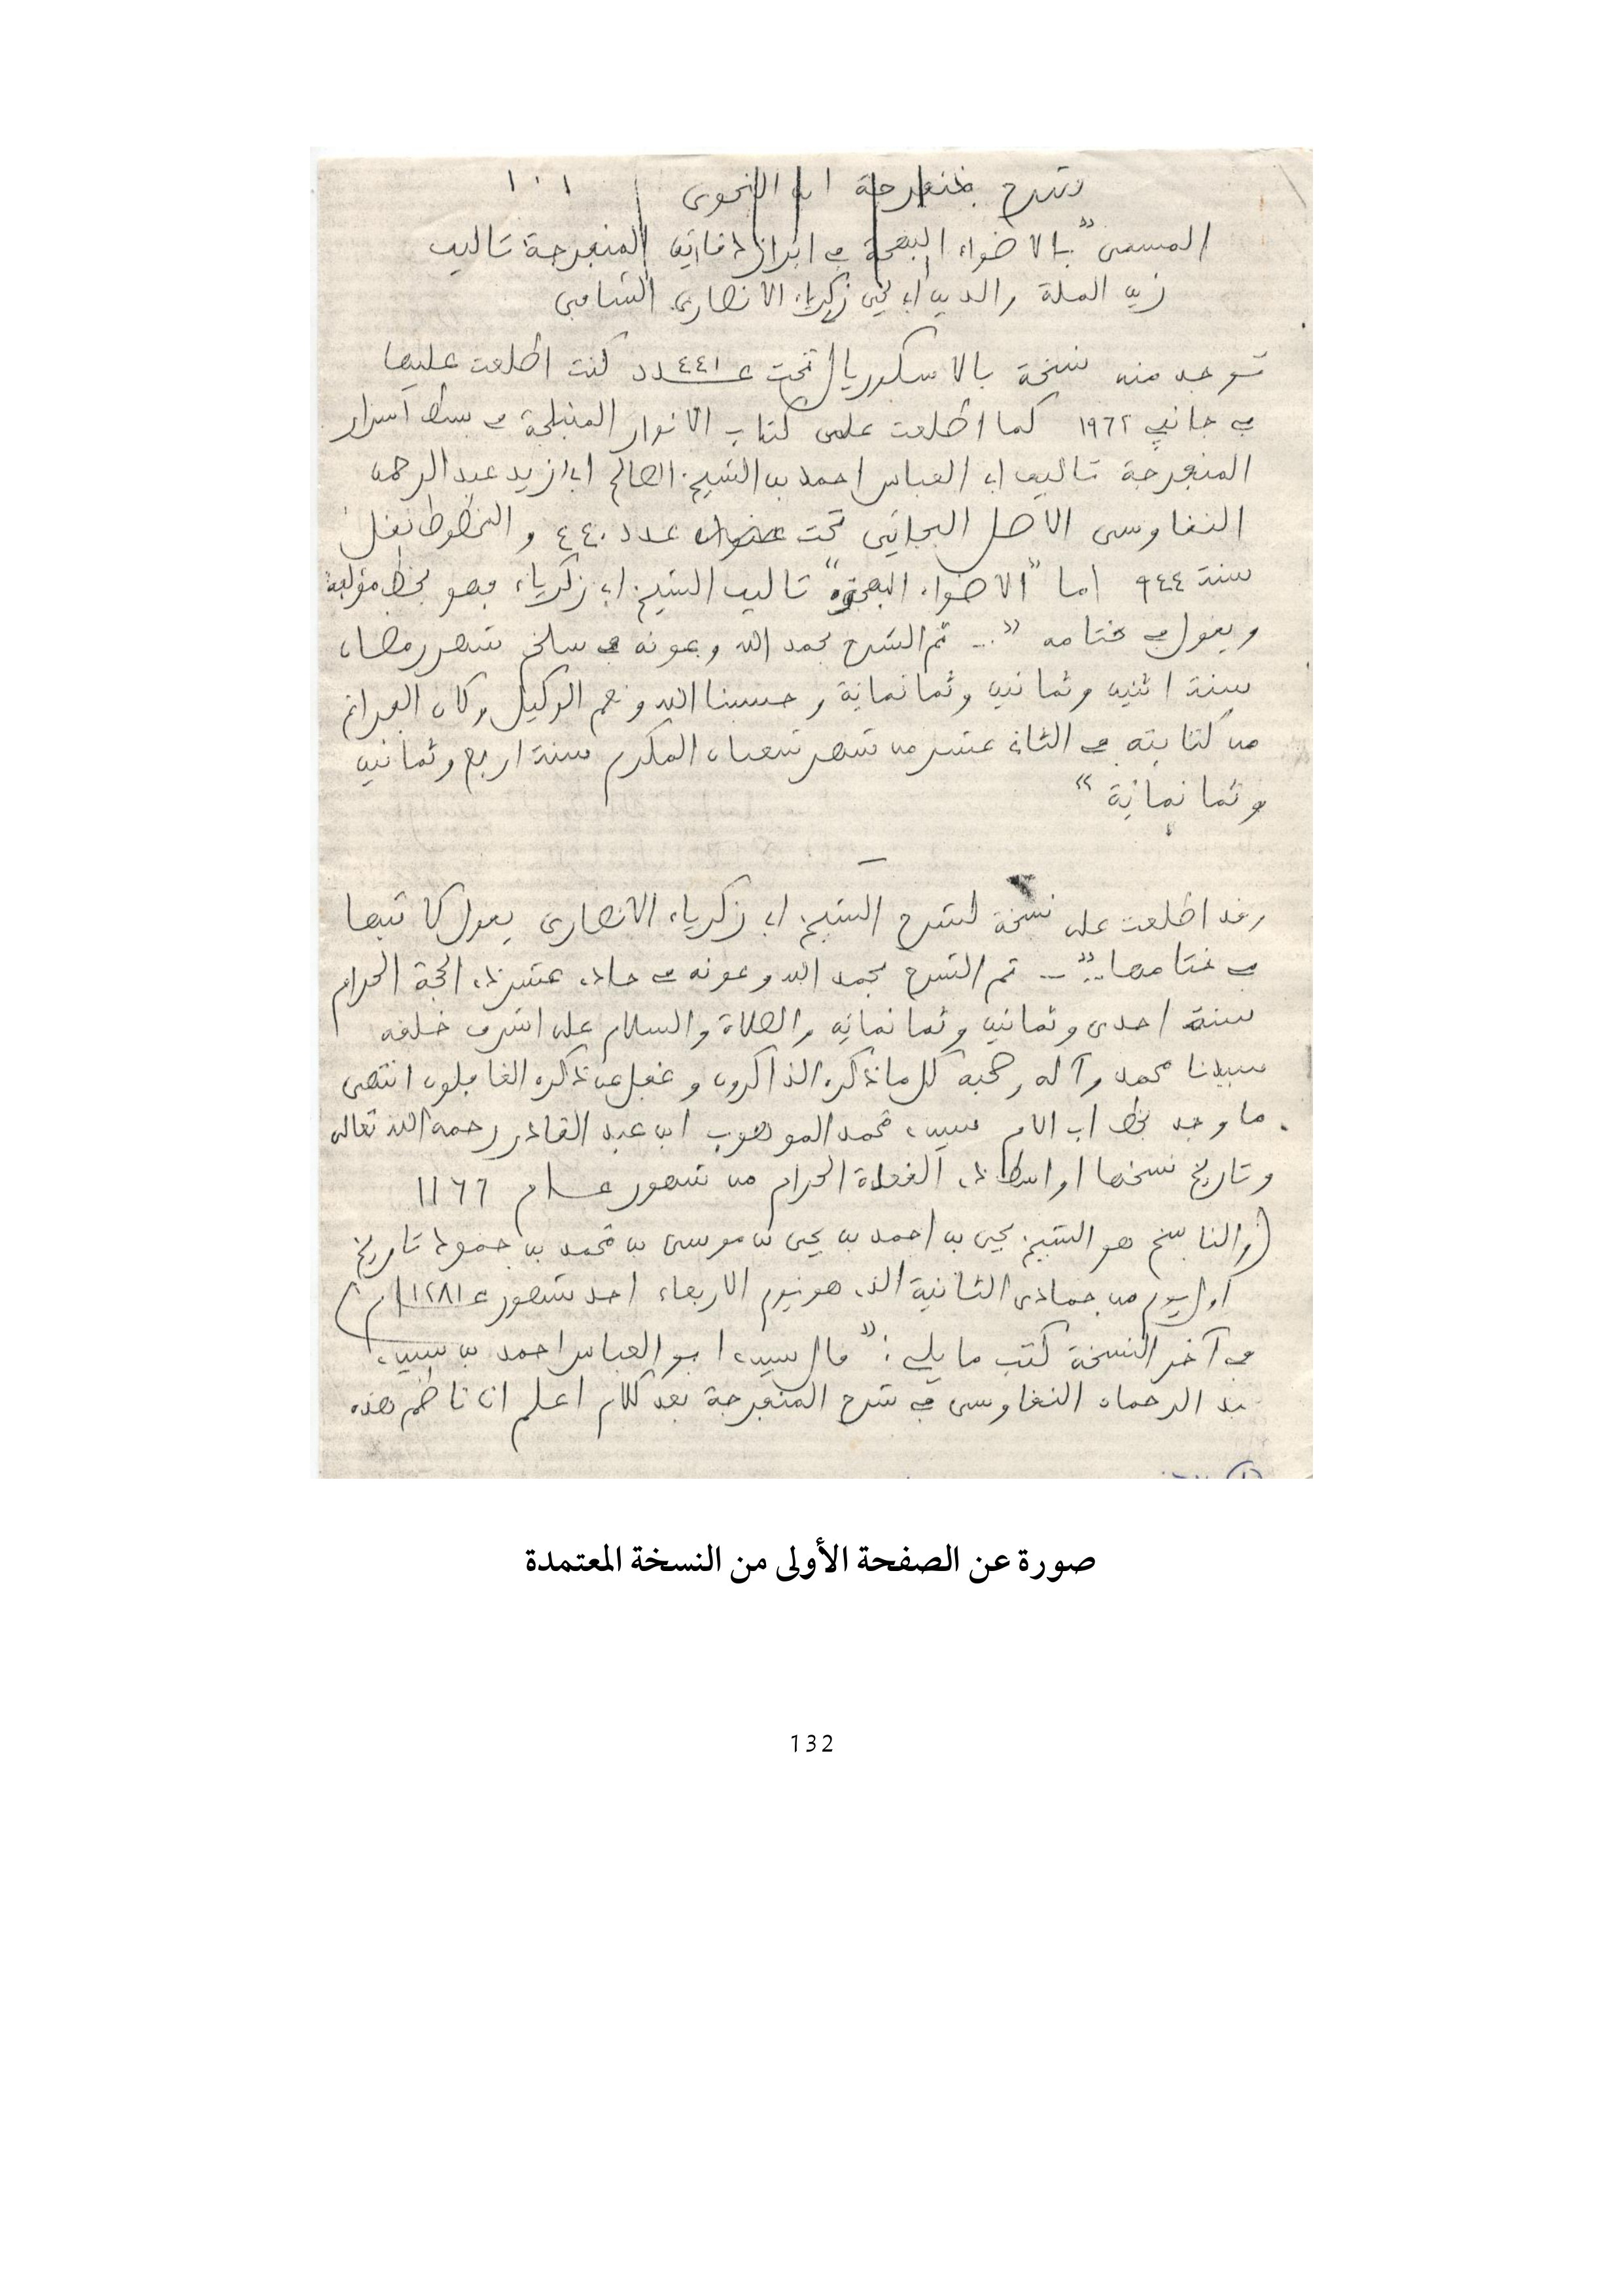 شرح منفرجة ابن النحوى ١٠١
المسمى "بالاضواء البهجة في ابراز دقائق المنفرجة تاليف
زين الملة والدين ابي يحيى زكرياء الانصاري الشافعي
توجد منه نسخة بالاسكوريال تحت عــ٤٤١ــدد كنت اطلعت عليها
في جانفي ١٩٦٢ كما اطلعت على كتاب الانوار المنبلجة في بسط اسرار
المنفرجة تاليف ابي العباس احمد بن الشيخ الصالح ابي زيد عبد الرحمن
النقاوسي الاصل البجائي تحت عدد ٤٤٠ والمخطوط نقل
سنة ٩٤٤ اما "الاضواء البهجة" تاليف الشيخ ابي زكرياء فهو بخط مؤلفه
ويقول في ختامه "... تم الشرح بحمد الله وعونه في سلخ شهر رمضان
سنة اثنين وثمانين وثمانمائة وحسبنا الله ونعم الوكيل وكان الفراغ
من كتابته في الثاني عشر من شهر شعبان المكرم سنة اربع وثمانين
وثمانمائة "
وقد اطلعت على نسخة لشرح الشيخ ابي زكرياء الانصاري يقول كاتبها
في ختامها.." ... تم الشرح بحمد الله وعونه في حادي عشر ذي الحجة الحرام
سنة احدى وثمانين وثمانمائه والصلاة والسلام على اشرف خلقه
سيدنا محمد وآله وصحبه كل ما ذكره الذاكرون وغفل عن ذكره الغافلون انتهى
ما وجد بخط سيدي محمد الموهوب ابن عبد القادر رحمه الله تعالى
وتاريخ نسخها اواسط ذي القعدة الحرام من شهور عــام ١١٦٦
(والناسخ هو الشيخ يحيى بن احمد بن يحيى بن موسى بن محمد بن حمود تاريخ
اول يوم من جمادى الثانية الذي هو يوم الاربعاء احد شهور عـ١٢٨١ـام)
في آخر النسخة كتب ما يلي: "قال سيدي ابو العباس احمد بن سيدي
عبد الرحمان النقاوسي في شرح المنفرجة بعد كلام اعلم ان ناظم هذه
صورة عن الصفحة الأولى من النسخة المعتمدة
132